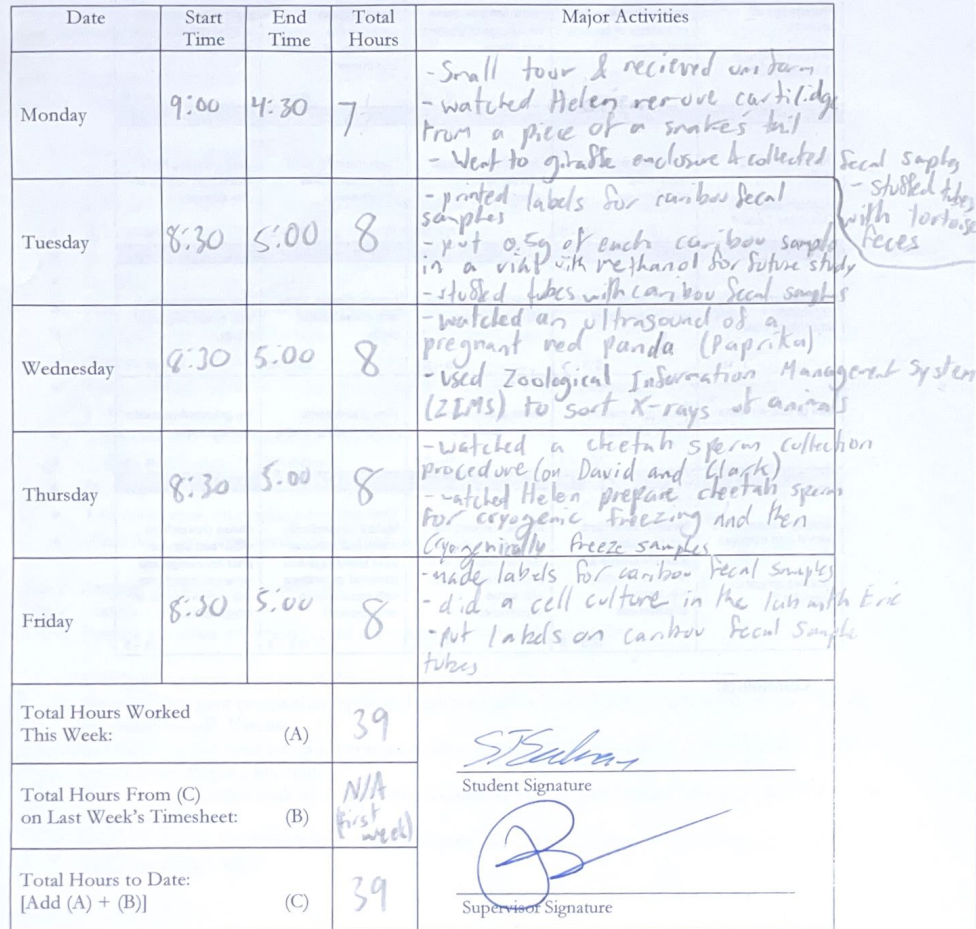 Date Start Time End Time Total Hours Major Activities
Monday 9:00 4:30 7
- Small tour & recieved uniform
- watched Helen remove cartilidge
from a piece of a snake's tail
- Went to giraffe enclosure & collected fecal saples
- stuffed tubes
with tortoise
feces
Tuesday 8:30 5:00 8
- printed labels for caribou fecal
samples
- put 0.5g of each caribou sample
in a vial with methanol for future study
- stuffed tubes with caribou fecal samples
Wednesday 8:30 5:00 8
- watched an ultrasound of a
pregnant red panda (Paprika)
- used Zoological Information Management System
(ZIMS) to sort X-rays of animals
Thursday 8:30 5:00 8
- watched a cheetah sperm collection
procedure (on David and Clark)
- watched Helen prepare cheetah sperm
for cryogenic freezing and then
cryogenically freeze samples
Friday 8:30 5:00 8
- made labels for caribou fecal samples
- did a cell culture in the lab with Eric
- put labels on caribou fecal sample
tubes
Total Hours Worked
This Week: (A) 39
Student Signature
Total Hours From (C)
on Last Week's Timesheet: (B) N/A
(first
week)
Total Hours to Date:
[Add (A) + (B)] (C) 39
Supervisor Signature